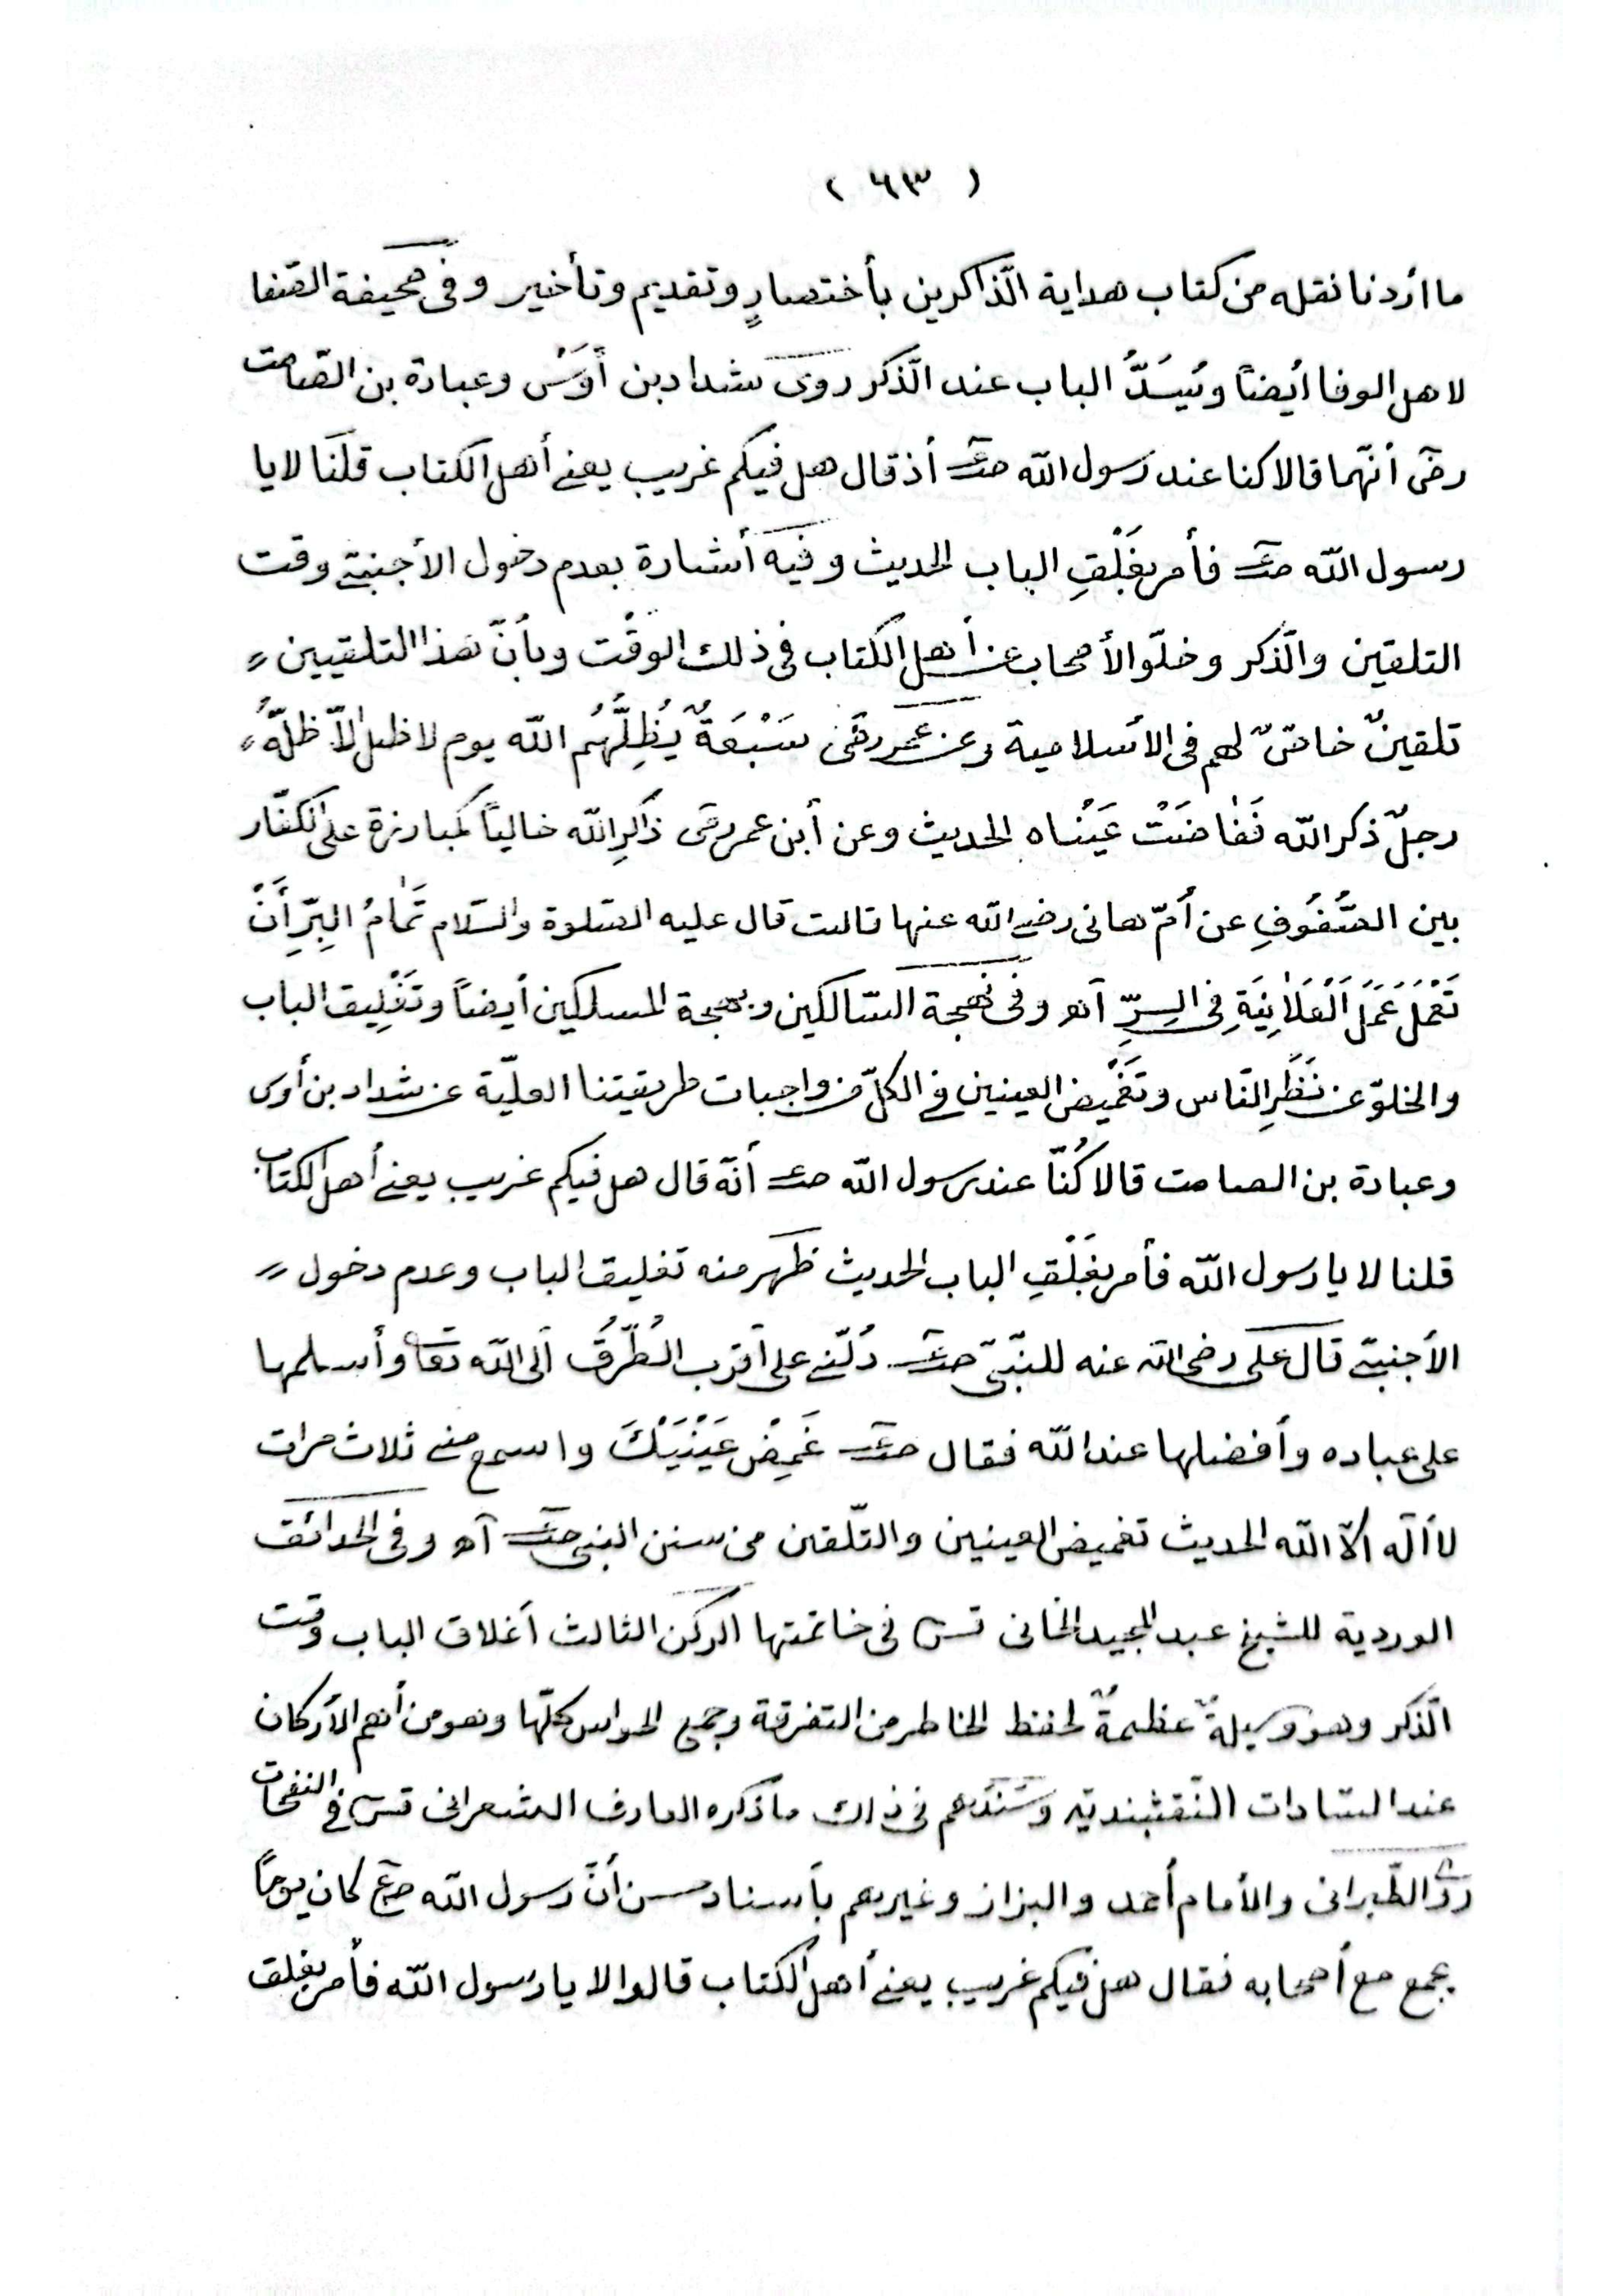 ( ٦٣ )
ما أردنا نقله من كتاب هداية الذّاكرين بأختصارٍ وتقديم وتأخير وفى صحيفة الصّفا
لاهل الوفا أيضاً ويُسَدُّ الباب عند الذّكر روى شداد بن أَوسْ وعبادة بن الصّامت
رضى أنّهما قالا كنا عند رسول الله صلعم أذ قال هل فيكم غريب يعنى أهل الكتاب قلنا لا يا
رسول الله صلعم فأمر بغَلْقِ الباب الحديث وفيه أشارة بعدم دخول الأجنبىّ وقت
التلقين والذّكر وخلوّ الأصحاب عن أهل الكتاب فى ذلك الوقت وبأنّ هذا التلقيين
تلقينٌ خاصّ لهم فى الأسلامية وعن عمر رضى سَبْعَةٌ يُظِلُّهُم الله يوم لا ظل إلاّ ظلّهُ
رجلٌ ذكر الله فَفَاضَتْ عَيْنَاه الحديث وعن أبن عمر رضى ذاكِرالله خالياً كمبارزة على الكفّار
بين الصُّفُوفِ عن أمّ هانى رضى الله عنها قالت قال عليه الصّلوة والسّلام تَمَامُ البِرِّ أَنْ
تَعْمَلَ عَمَلَ الْعَلَانِيَةِ فِى السِرِّ آه وفى نهجة السّالكين وبهجة المسلكين أيضاً وتَغْلِيق الباب
والخلوّ عن نَظَرِ النّاس وتَغْمِيض العينين فى الكلّ من واجبات طريقيتنا العليّة عن شداد بن أوس
وعبادة بن الصامت قالا كُنّا عند رسول الله صلعم أنّه قال هل فيكم غريب يعنى أهل الكتاب
قلنا لا يا رسول الله فأمر بغَلْقِ الباب الحديث ظهر منه تغليق الباب وعدم دخول
الأجنبىّ قال على رضى الله عنه للنّبىّ صلعم دُلّنى على أقرب الطُّرُقُ الى الله تعا وأسلمها
على عباده وأفضلها عند الله فقال صلعم غَمِضْ عَيْنَيْكَ واسمع منى ثلاث مرات
لا أله الاّ الله الحديث تغميض العينين والتّلقين من سنن النبى صلعم آه وفى الحدائق
الوردية للشيخ عبد المجيد الخانى قس فى خاتمتها الركن الثالث أغلاق الباب وقت
الذّكر وهو وسيلةٌ عظيمةٌ لحفظ الخاطر من التفرقة وجمع الحواس كلّها وهو من أهم الأركان
عند السّادات النّقشبنديّه وسَنَدهم فى ذلك ما ذكره العارف الشعرانى قس فى النفحات
روى الطّبرانى والأمام أحمد والبزاز وغيرهم بأسناد حسن أنّ رسول الله صلعم كان يوماً
يجمع مع أصحابه فقال هل فيكم غريب يعنى أهل الكتاب قالوا لا يا رسول الله فأمر بغلق